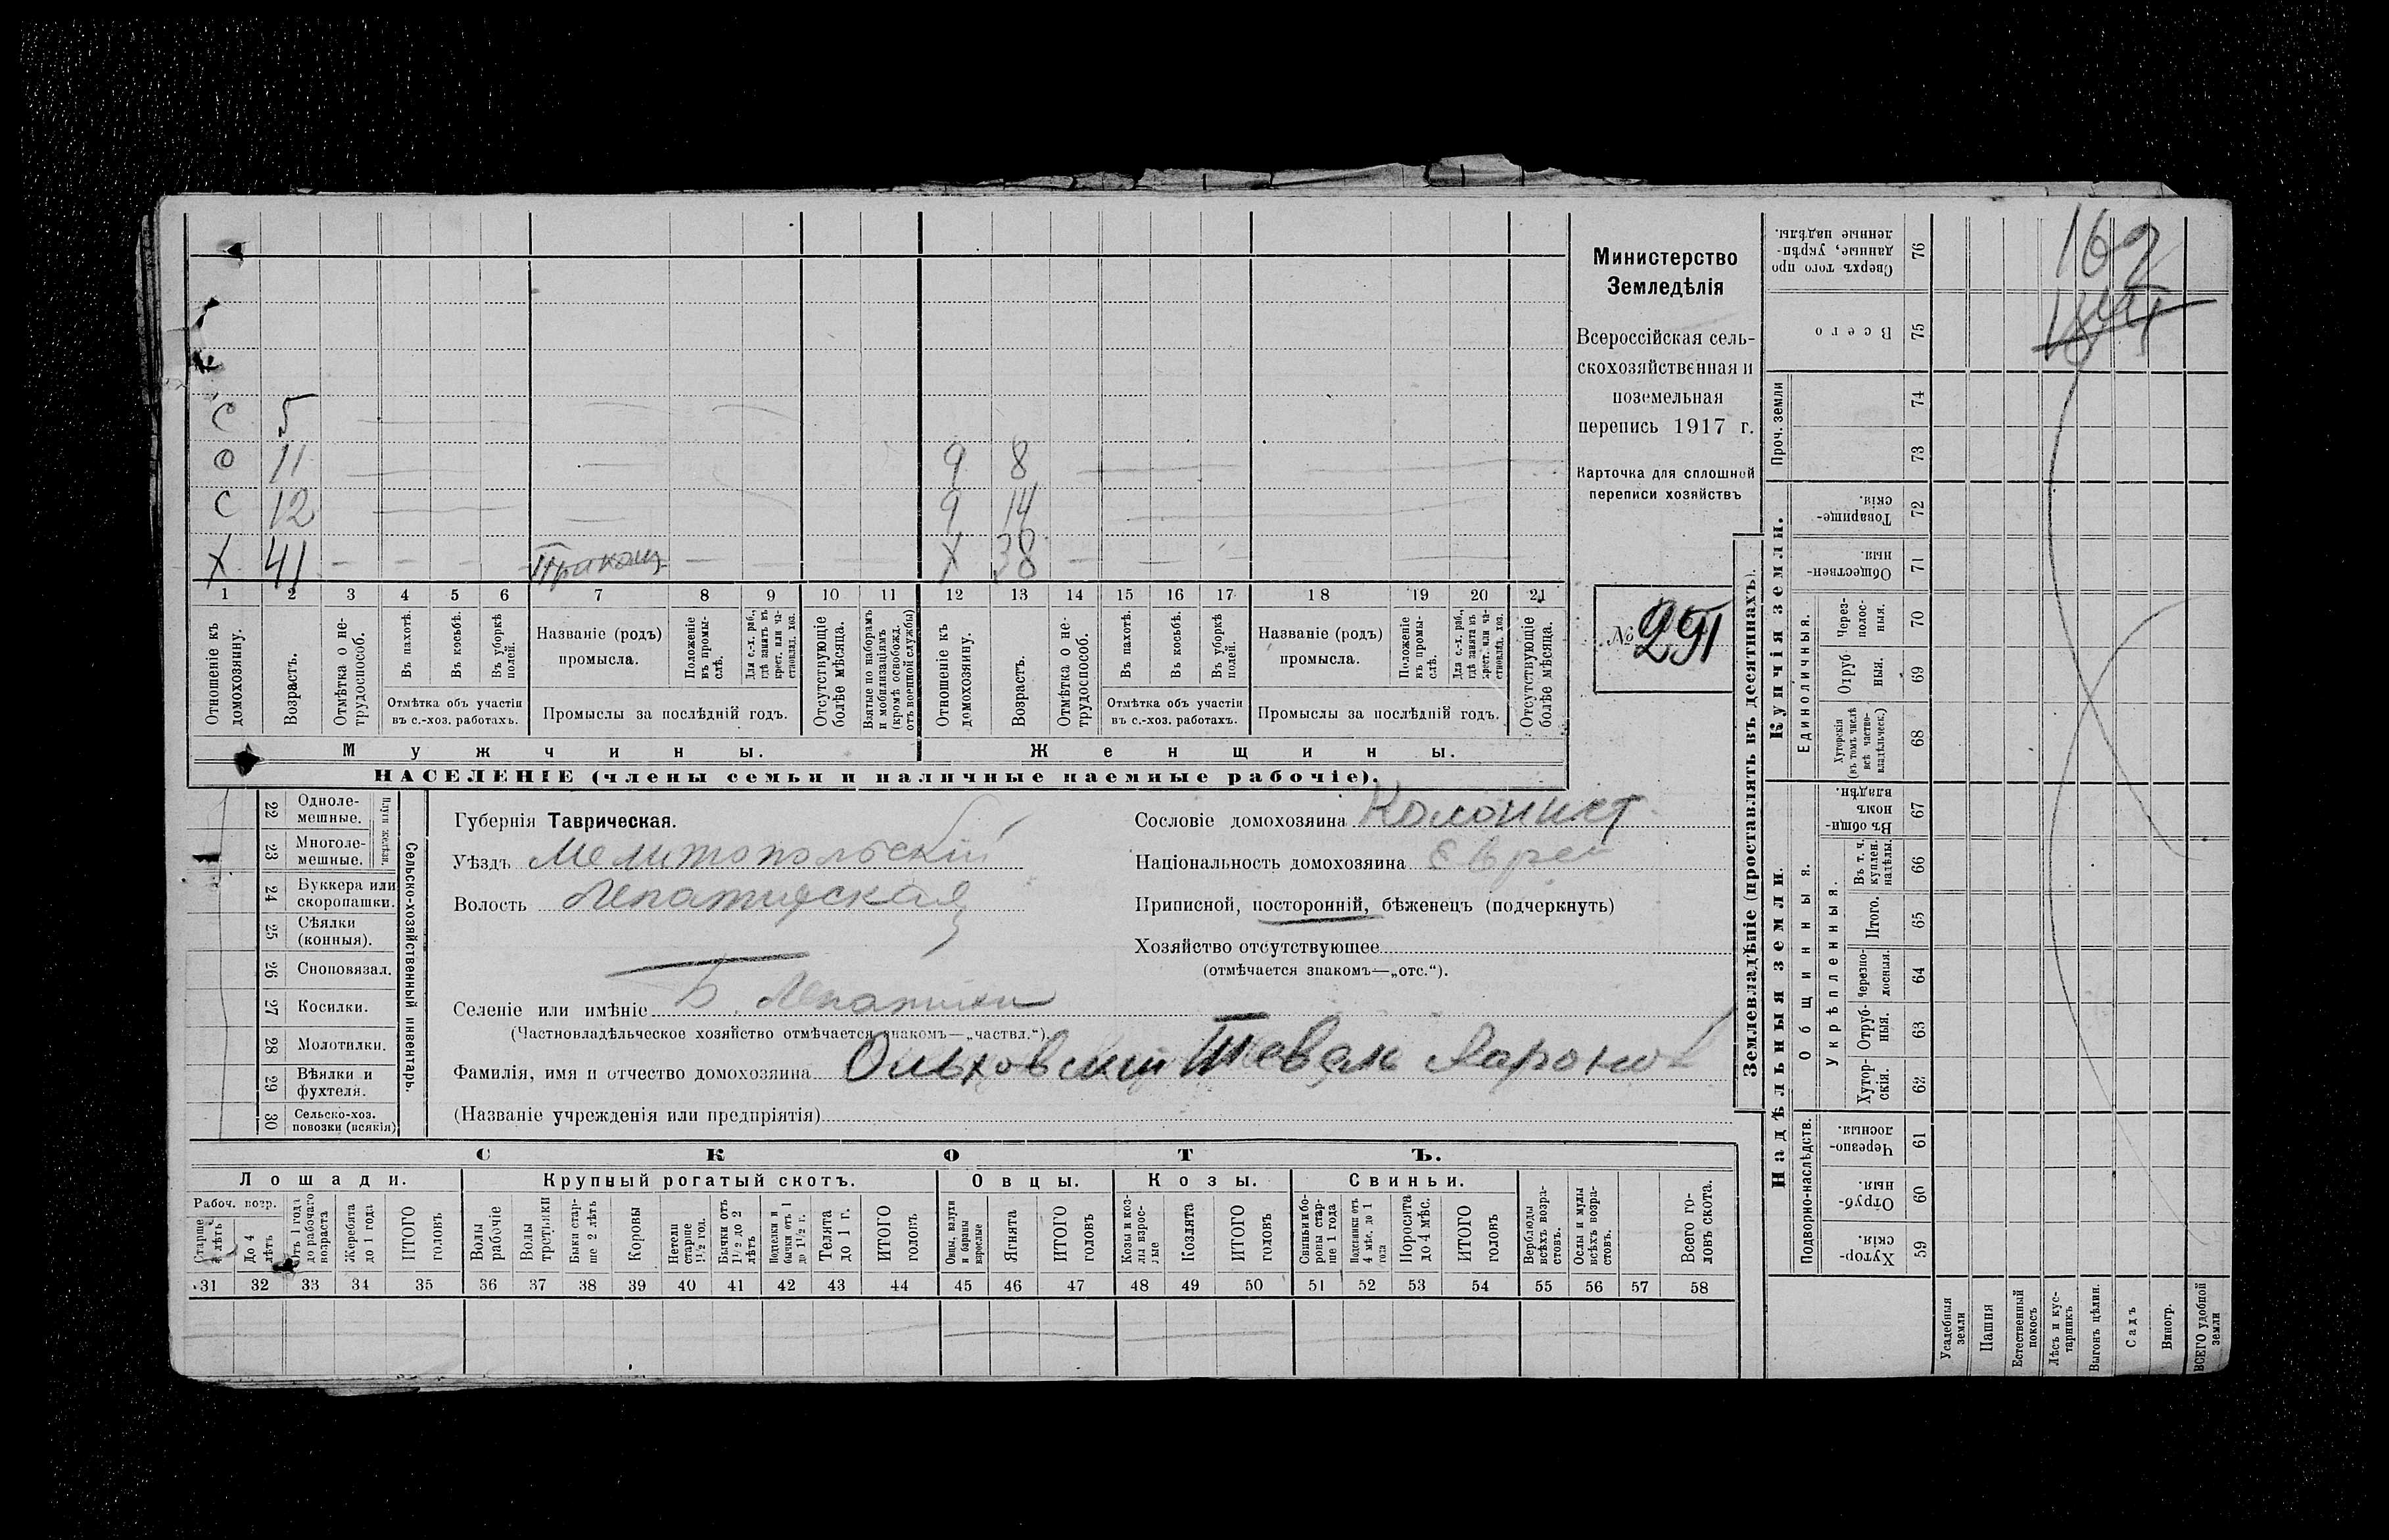 С 5
О 11 9 8
С 12 9 14
Х 41 — — — — Приказч. — — — — Х 38 — —
1 2 3 4 5 6 7 8 9 10 11 12 13 14 15 16 17 18 19 20 21
Отношеніе къ домохозяину.
Возрастъ.
Отмѣтка о не-
трудоспособ.
Въ пахотѣ.
Въ косьбѣ.
Въ уборкѣ
полей.
Отмѣтка объ участіи
въ с.-хоз. работахъ.
Названіе (родъ)
промысла.
Положеніе
въ промы-
слѣ.
Для с.-х. раб.,
гдѣ занятъ въ
крест. или ча-
стновлад. хоз.
Промыслы за послѣдній годъ.
Отсутствующіе
болѣе мѣсяца.
Взятые по наборамъ
и мобилизаціямъ
(кромѣ освобожд.
отъ военной службы)
Отношеніе къ
домохозяину.
Возрастъ.
Отмѣтка о не-
трудоспособ.
Въ пахотѣ.
Въ косьбѣ.
Въ уборкѣ
полей.
Отмѣтка объ участіи
въ с.-хоз. работахъ.
Названіе (родъ)
промысла.
Положеніе
въ промы-
слѣ.
Для с.-х. раб.,
гдѣ занята въ
крест. или ча-
стновлад. хоз.
Промыслы за послѣдній годъ.
Отсутствующіе
болѣе мѣсяца.
Мужчины.
Женщины.
НАСЕЛЕНІЕ (члены семьи и наличные наемные рабочіе).
Министерство
Земледѣлія
Всероссійская сель-
скохозяйственная и
поземельная
перепись 1917 г.
Карточка для сплошной
переписи хозяйствъ
№ 291
22 Одноле-
мешные.
23 Многоле-
мешные.
Плуги желѣзн.
24 Буккера или
скоропашки.
25 Сѣялки
(конныя).
26 Сноповязал.
27 Косилки.
28 Молотилки.
29 Вѣялки и
фухтеля.
30 Сельско-хоз.
повозки (всякія)
Сельско-хозяйственный инвентарь.
Губернія Таврическая.
Уѣздъ Мелитопольскій
Волость Лепатихская
Селеніе или имѣніе Б. Лепатиха
(Частновладѣльческое хозяйство отмѣчается знакомъ—„частвл.“).
Фамилія, имя и отчество домохозяина Ольховскій Тевель Ааронов
(Названіе учрежденія или предпріятія)
Сословіе домохозяина Колонист
Національность домохозяина Еврей
Приписной, посторонній, бѣженецъ (подчеркнуть)
Хозяйство отсутствующее
(отмѣчается знакомъ—„отс.“).
СКОТЪ.
Лошади.
Рабоч. возр.
Старше
4 лѣтъ
До 4
лѣтъ
Отъ 1 года
до рабочаго
возраста
Жеребята
до 1 года
ИТОГО
головъ
Крупный рогатый скотъ.
Волы
рабочіе
Волы
третьяки
Быки стар-
ше 2 лѣтъ
Коровы
Нетели
старше
1½ год.
Бычки отъ
1½ до 2
лѣтъ
Подтелки и
бычки отъ 1
до 1½ г.
Телята
до 1 г.
ИТОГО
головъ
Овцы.
Овцы, валухи
и бараны
взрослые
Ягнята
ИТОГО
головъ
Козы.
Козы и коз-
лы взрос-
лые
Козлята
ИТОГО
головъ
Свиньи.
Свиньи и бо-
ровы стар-
ше 1 года
Подсвинки отъ
4 мѣс. до 1
года
Поросята
до 4 мѣс.
ИТОГО
головъ
Верблюды
всѣхъ возра-
стовъ.
Ослы и мулы
всѣхъ возра-
стовъ.
Всего го-
ловъ скота.
31 32 33 34 35 36 37 38 39 40 41 42 43 44 45 46 47 48 49 50 51 52 53 54 55 56 57 58
Землевладѣніе (проставлять въ десятинахъ).
162
184
Сверхъ того про
данные, укрѣп-
ленные надѣлы. 76
Всего 75
Проч. земли
74
73
Купчія земли.
Товарище-
скія. 72
Обществен-
ныя. 71
Единоличныя.
Через-
полос-
ныя. 70
Отруб-
ныя. 69
Хуторскія
(въ томъ числѣ
всѣ частно-
владѣльческ.) 68
Надѣльныя земли.
Общинныя.
Въ общин-
номъ
владѣн. 67
Укрѣпленныя.
Въ т. ч.
куплен.
надѣлы. 66
Итого. 65
Черезпо-
лосныя. 64
Отруб-
ныя. 63
Хутор-
скія. 62
Подворно-наслѣдств.
Черезпо-
лосныя. 61
Отруб-
ныя. 60
Хутор-
скія. 59
Усадебныя
земли
Пашня
Естественный
покосъ
Лѣсъ и кус-
тарникъ
Выгонъ цѣлин.
Садъ
Виногр.
ВСЕГО удобной
земли